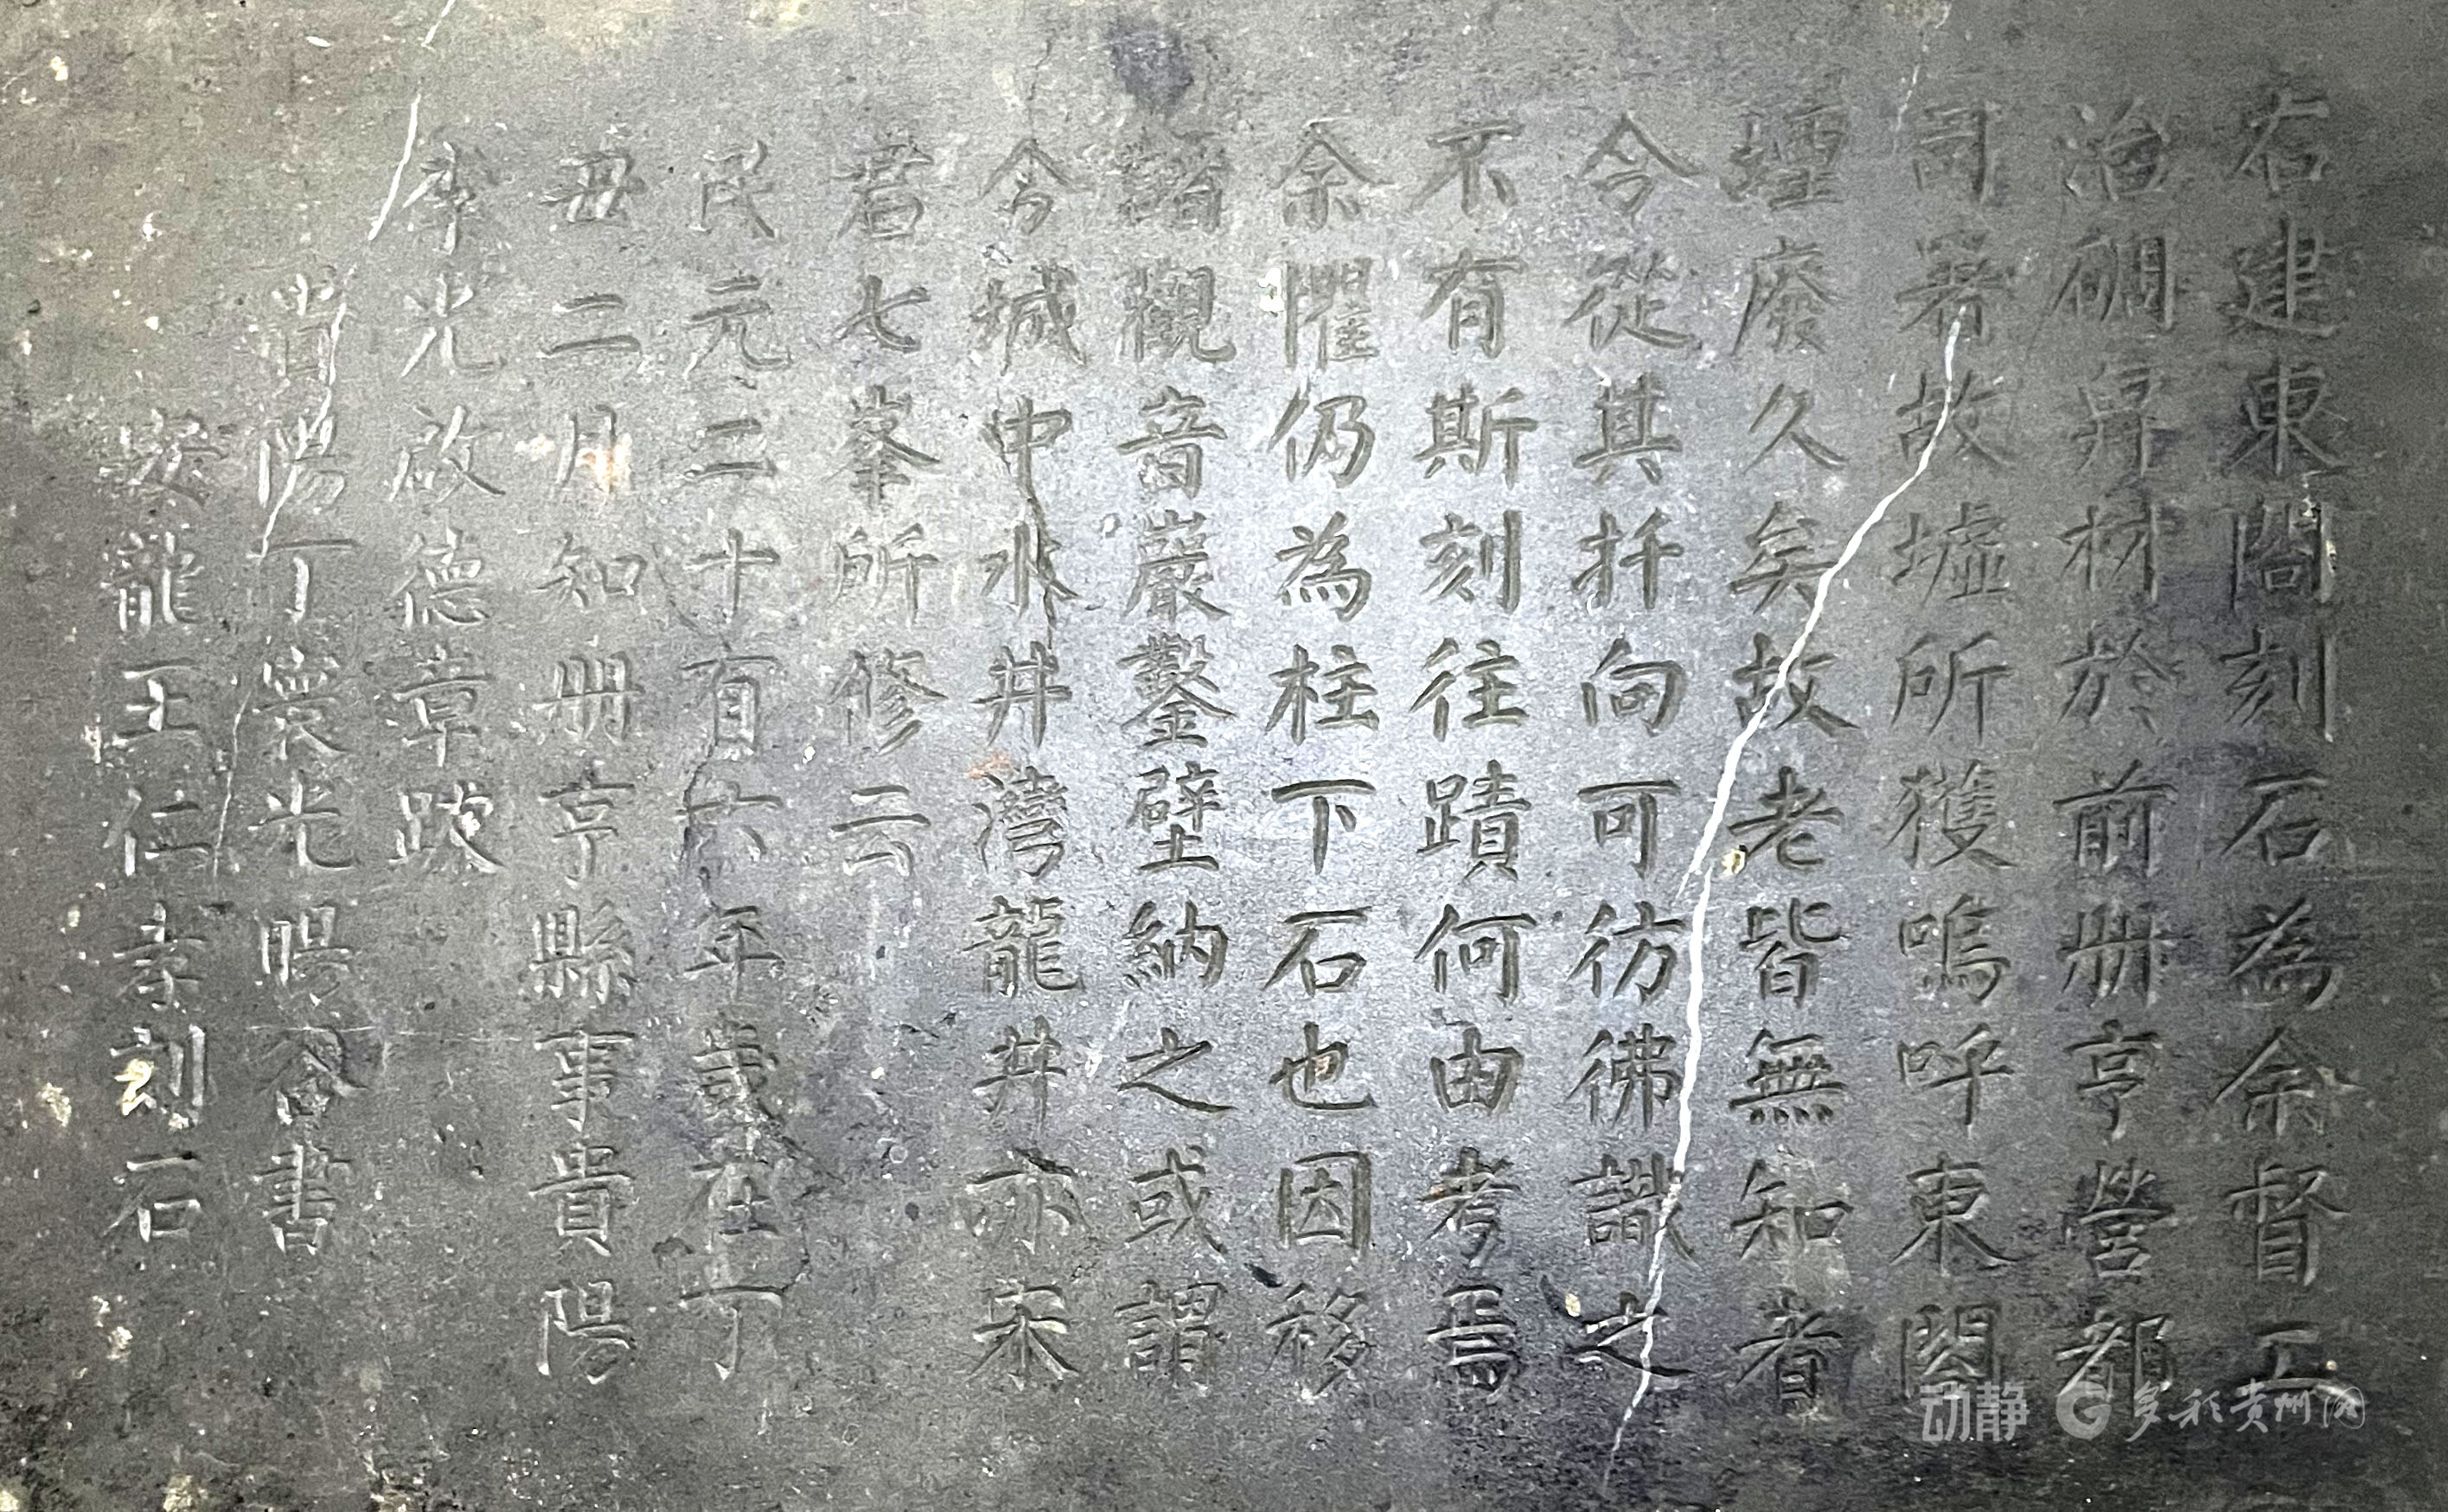 右建東閣刻石為余督工
治碉尋材於前册亨營都
司署故墟所獲嗚呼東閣
堙廢久矣故老皆無知者
今從其扦向可彷彿識之
不有斯刻往蹟何由考焉
余懼仍為柱下石也因移
諸觀音巖鑿壁納之或謂
今城中水井灣龍井亦宋
君七峯所修云
民元二十有六年歲在丁
丑二月知册亨縣事貴陽
李光啟德章跋
貴陽丁寰光暘谷書
安龍王仁孝刻石
动静 多彩贵州网